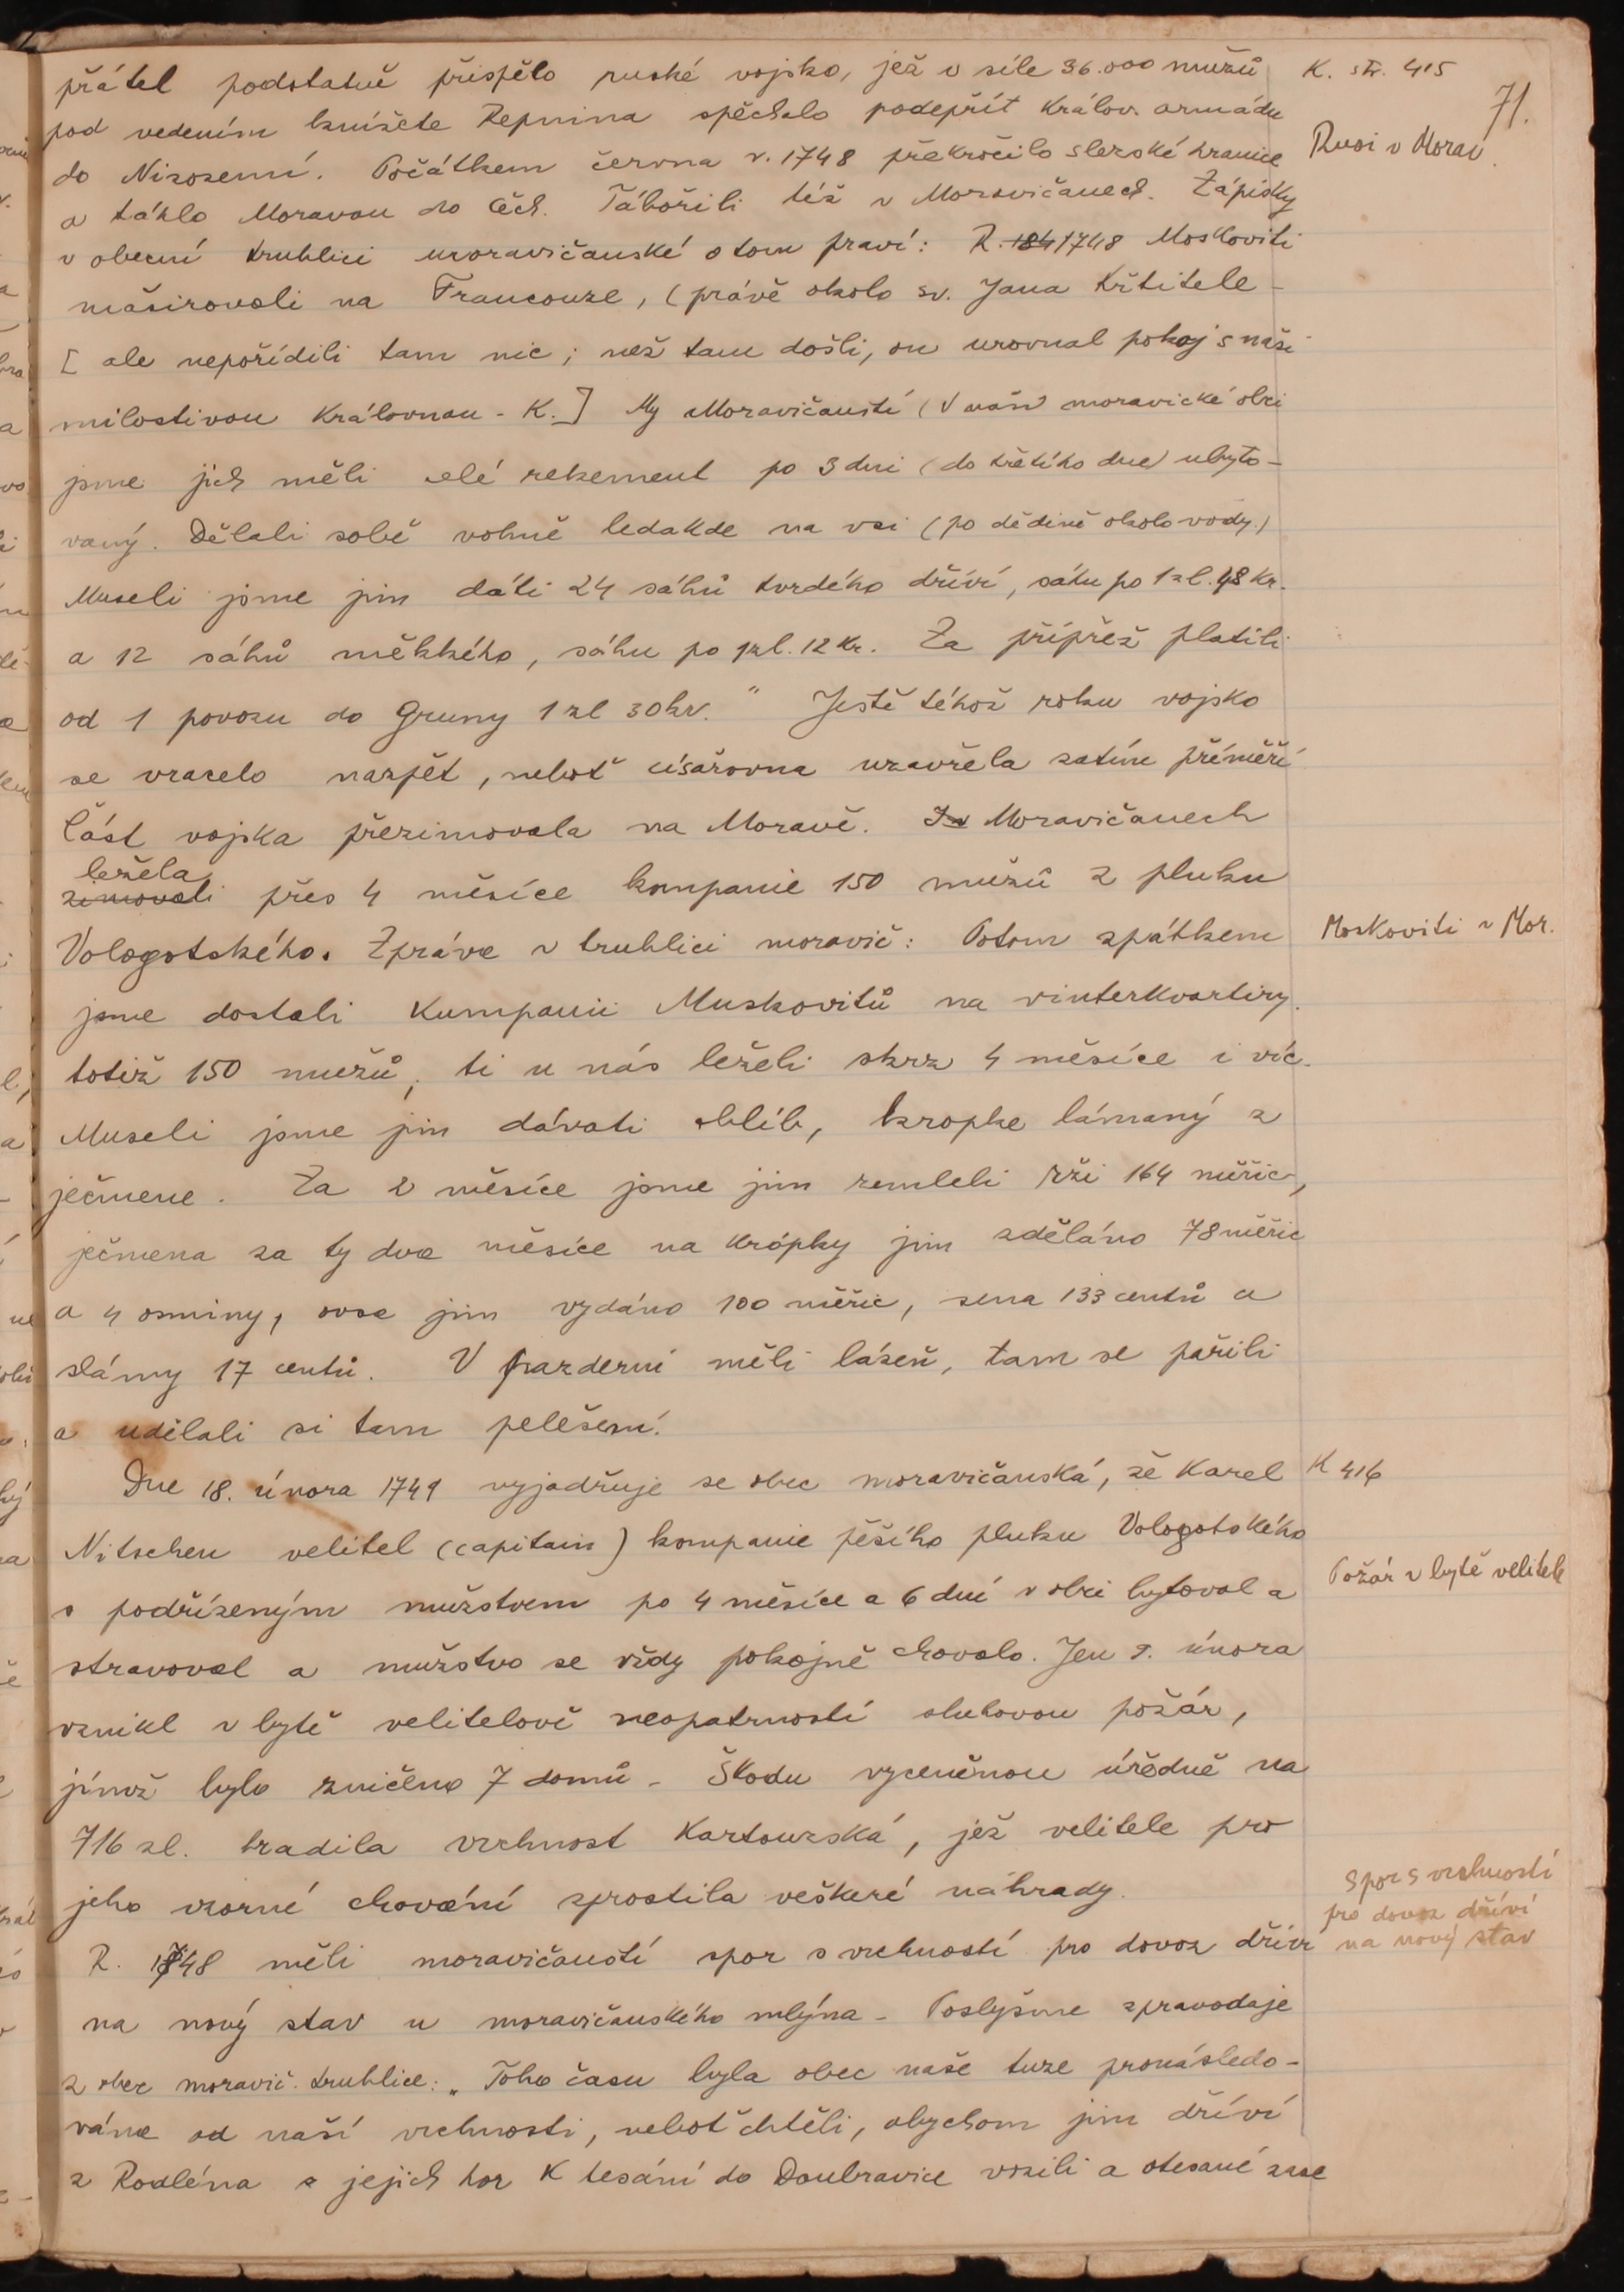 přátel podstatně přispělo ruské vojsko, jež v síle 36.000 mužů
K. str. 415
71.
pod vedením knížete Repnina spěchalo podepřít králov. armádu
Rusi v Morav.
do Nizozemí. Počátkem června r. 1748 překročilo slezské hranice
a táhlo Moravou do Čech. Tábořili též v Moravičanech. Zápisky
v obecní truhlici moravičanské o tom praví: R. 184 1748 Moskoviti
maširovali na Francouze, (právě okolo sv. Jana Křtitele -
[ ale nepořídili tam nic; než tam došli, on urovnal pokoj s naší
milostivou Královnou - K. ] My Moravičanští (V naší moravické obci
jsme jich měli celé rekement po 3 dni (do třetího dne) ubyto-
vaný. Dělali sobě vohně ledakde na vsi (po dědině okolo vody.)
Museli jsme jim dáti 24 sáhů tvrdého dříví, sáhu po 1 zl. 48 kr.
a 12 sáhů měkkého, sáhu po 1 zl. 12 kr. Za přípřež platili
od 1 povozu do Gruny 1 zl 30 kr." Ještě téhož roku vojsko
se vracelo nazpět, neboť císařovna uzavřela zatím příměří
Část vojska přezimovala na Moravě. In Moravičanech
ležela
zimovali přes 4 měsíce kompanie 150 mužů z pluku
Vologotského. Zpráva v truhlici moravič: Potom zpátkem
Moskoviti v Mor.
jsme dostali Kumpanii Muskovitů na vinterkvartiry.
totiž 150 mužů, ti u nás leželi skrz 4 měsíce i víc.
Museli jsme jim dávati chlíb, kropke lámaný z
ječmene. Za 2 měsíce jsme jim zemleli rži 164 měřic,
ječmena za ty dva měsíce na krópky jim zděláno 78 měřic
a 4 osminy, ovsa jim vydáno 100 měřic, sena 133 centů a
slámy 17 centů. V pazderni měli lázeň, tam se pařili
a udělali si tam pelešení.
Dne 18. února 1749 vyjadřuje se obec moravičanská, že Karel
K 416
Nitschen velitel (capitain) kompanie pěšího pluku Vologotského
Požár v bytě velitele
s podřízeným mužstvem po 4 měsíce a 6 dní v obci bytoval a
stravoval a mužstvo se vždy pokojně chovalo. Jen 9. února
vznikl v bytě velitelově neopatrností sluhovou požár,
jímž bylo zničeno 7 domů - Škodu vyceněnou úředně na
716 zl. hradila vrchnost Kartouzská, jež velitele pro
jeho vzorné chování zprostila veškeré náhrady.
Spor s vrchností
pro dovoz dříví
na nový stav
R. 1748 měli moravičanští spor s vrchností pro dovoz dříví
na nový stav u moravičanského mlýna - Poslyšme zpravodaje
z obec moravič. truhlice: „Toho času byla obec naše tuze pronásledo-
vána od naší vrchnosti, neboť chtěli, abychom jim dříví
z Rodléna z jejich hor k tesání do Doubravice vozili a otesané zase